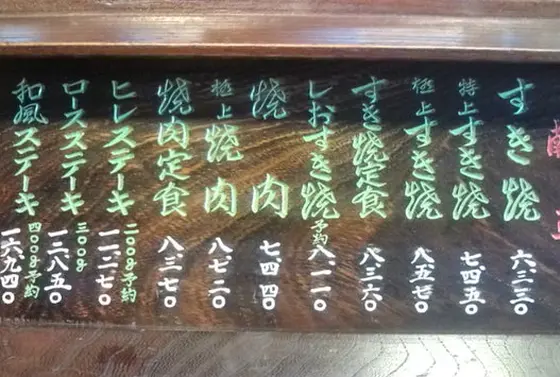 すき焼 六、三三〇
特上すき焼 七、四五〇
極上すき焼 八、五七〇
すき焼定食 八、三六〇
しおすき焼 予約 八、一一〇
焼肉 七、四四〇
極上焼肉 八、七二〇
焼肉定食 八、三七〇
ヒレステーキ 二〇〇g予約 一一、二七〇
ロースステーキ 三〇〇g 一二、八五〇
和風ステーキ 四〇〇g予約 一六、九四〇